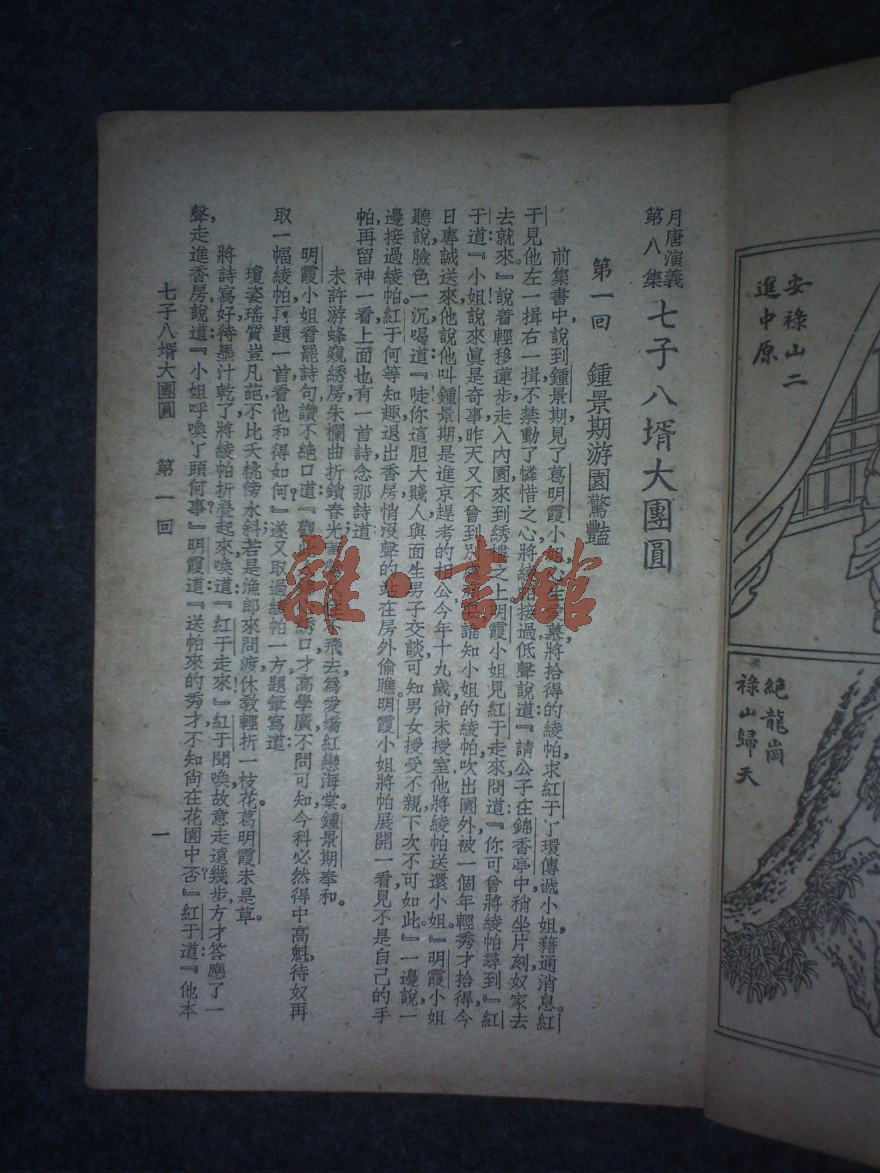 安祿山二
進中原
絕龍崗
祿山歸天
月唐演義
第八集
七子八壻大團圓
第一回 鍾景期游園驚豔
前集書中說到鍾景期見了葛明霞小姐，將拾得的綾帕，求紅于丫環傳遞小姐，藉通消息。紅
于見他左一揖右一揖，不禁動了憐惜之心，將綾帕接過，低聲說道：『請公子在錦香亭中稍坐片刻，奴家去
去就來。』說着，輕移蓮步，走入內園，來到綉樓之上，明霞小姐見紅于走來，問道：『你可曾將綾帕尋到？』紅
于道：『小姐說來眞是奇事，昨天又不曾到別，誰知小姐的綾帕吹出園外，被一個年輕秀才拾得，今
日專誠送來，他說他叫鍾景期，是進京趕考的相公，今年十九歲，尙未授室，他將綾帕送還小姐。』明霞小姐
聽說，臉色一沉，喝道：『唗，你這胆大賤人，與面生男子交談，可知男女授受不親，下次不可如此。』一邊說，一
邊接過綾帕，紅于何等知趣，退出香房，悄沒聲的站在房外偷瞧，明霞小姐將帕展開一看，見不是自己的手
帕，再留神一看，上面也有一首詩，念那詩道：
未許游蜂窺綉房，朱欄曲折鎖春光，飛去，爲愛嬌紅戀海棠。鍾景期奉和。
明霞小姐看罷詩句，讚不絕口道：『觀此綉口，才高學廣，不問可知，今科必然得中高魁，待奴再
取一幅綾帕，再題一首，看他和得如何？』遂又取過綾帕一方，題筆寫道：
瓊姿瑤質豈凡葩，不比夭桃傍水斜，若是漁郎來問渡，休敎輕折一枝花。葛明霞未是草。
將詩寫好，待墨汁乾了，將綾帕折疊起來，喚道：『紅于走來！』紅于聞喚，故意走遠幾步，方才答應了一
聲，走進香房，說道：『小姐呼喚丫頭何事？』明霞道：『送帕來的秀才，不知尙在花園中否？』紅于道：『他本
七子八壻大團圓 第一回 一
雜·書館